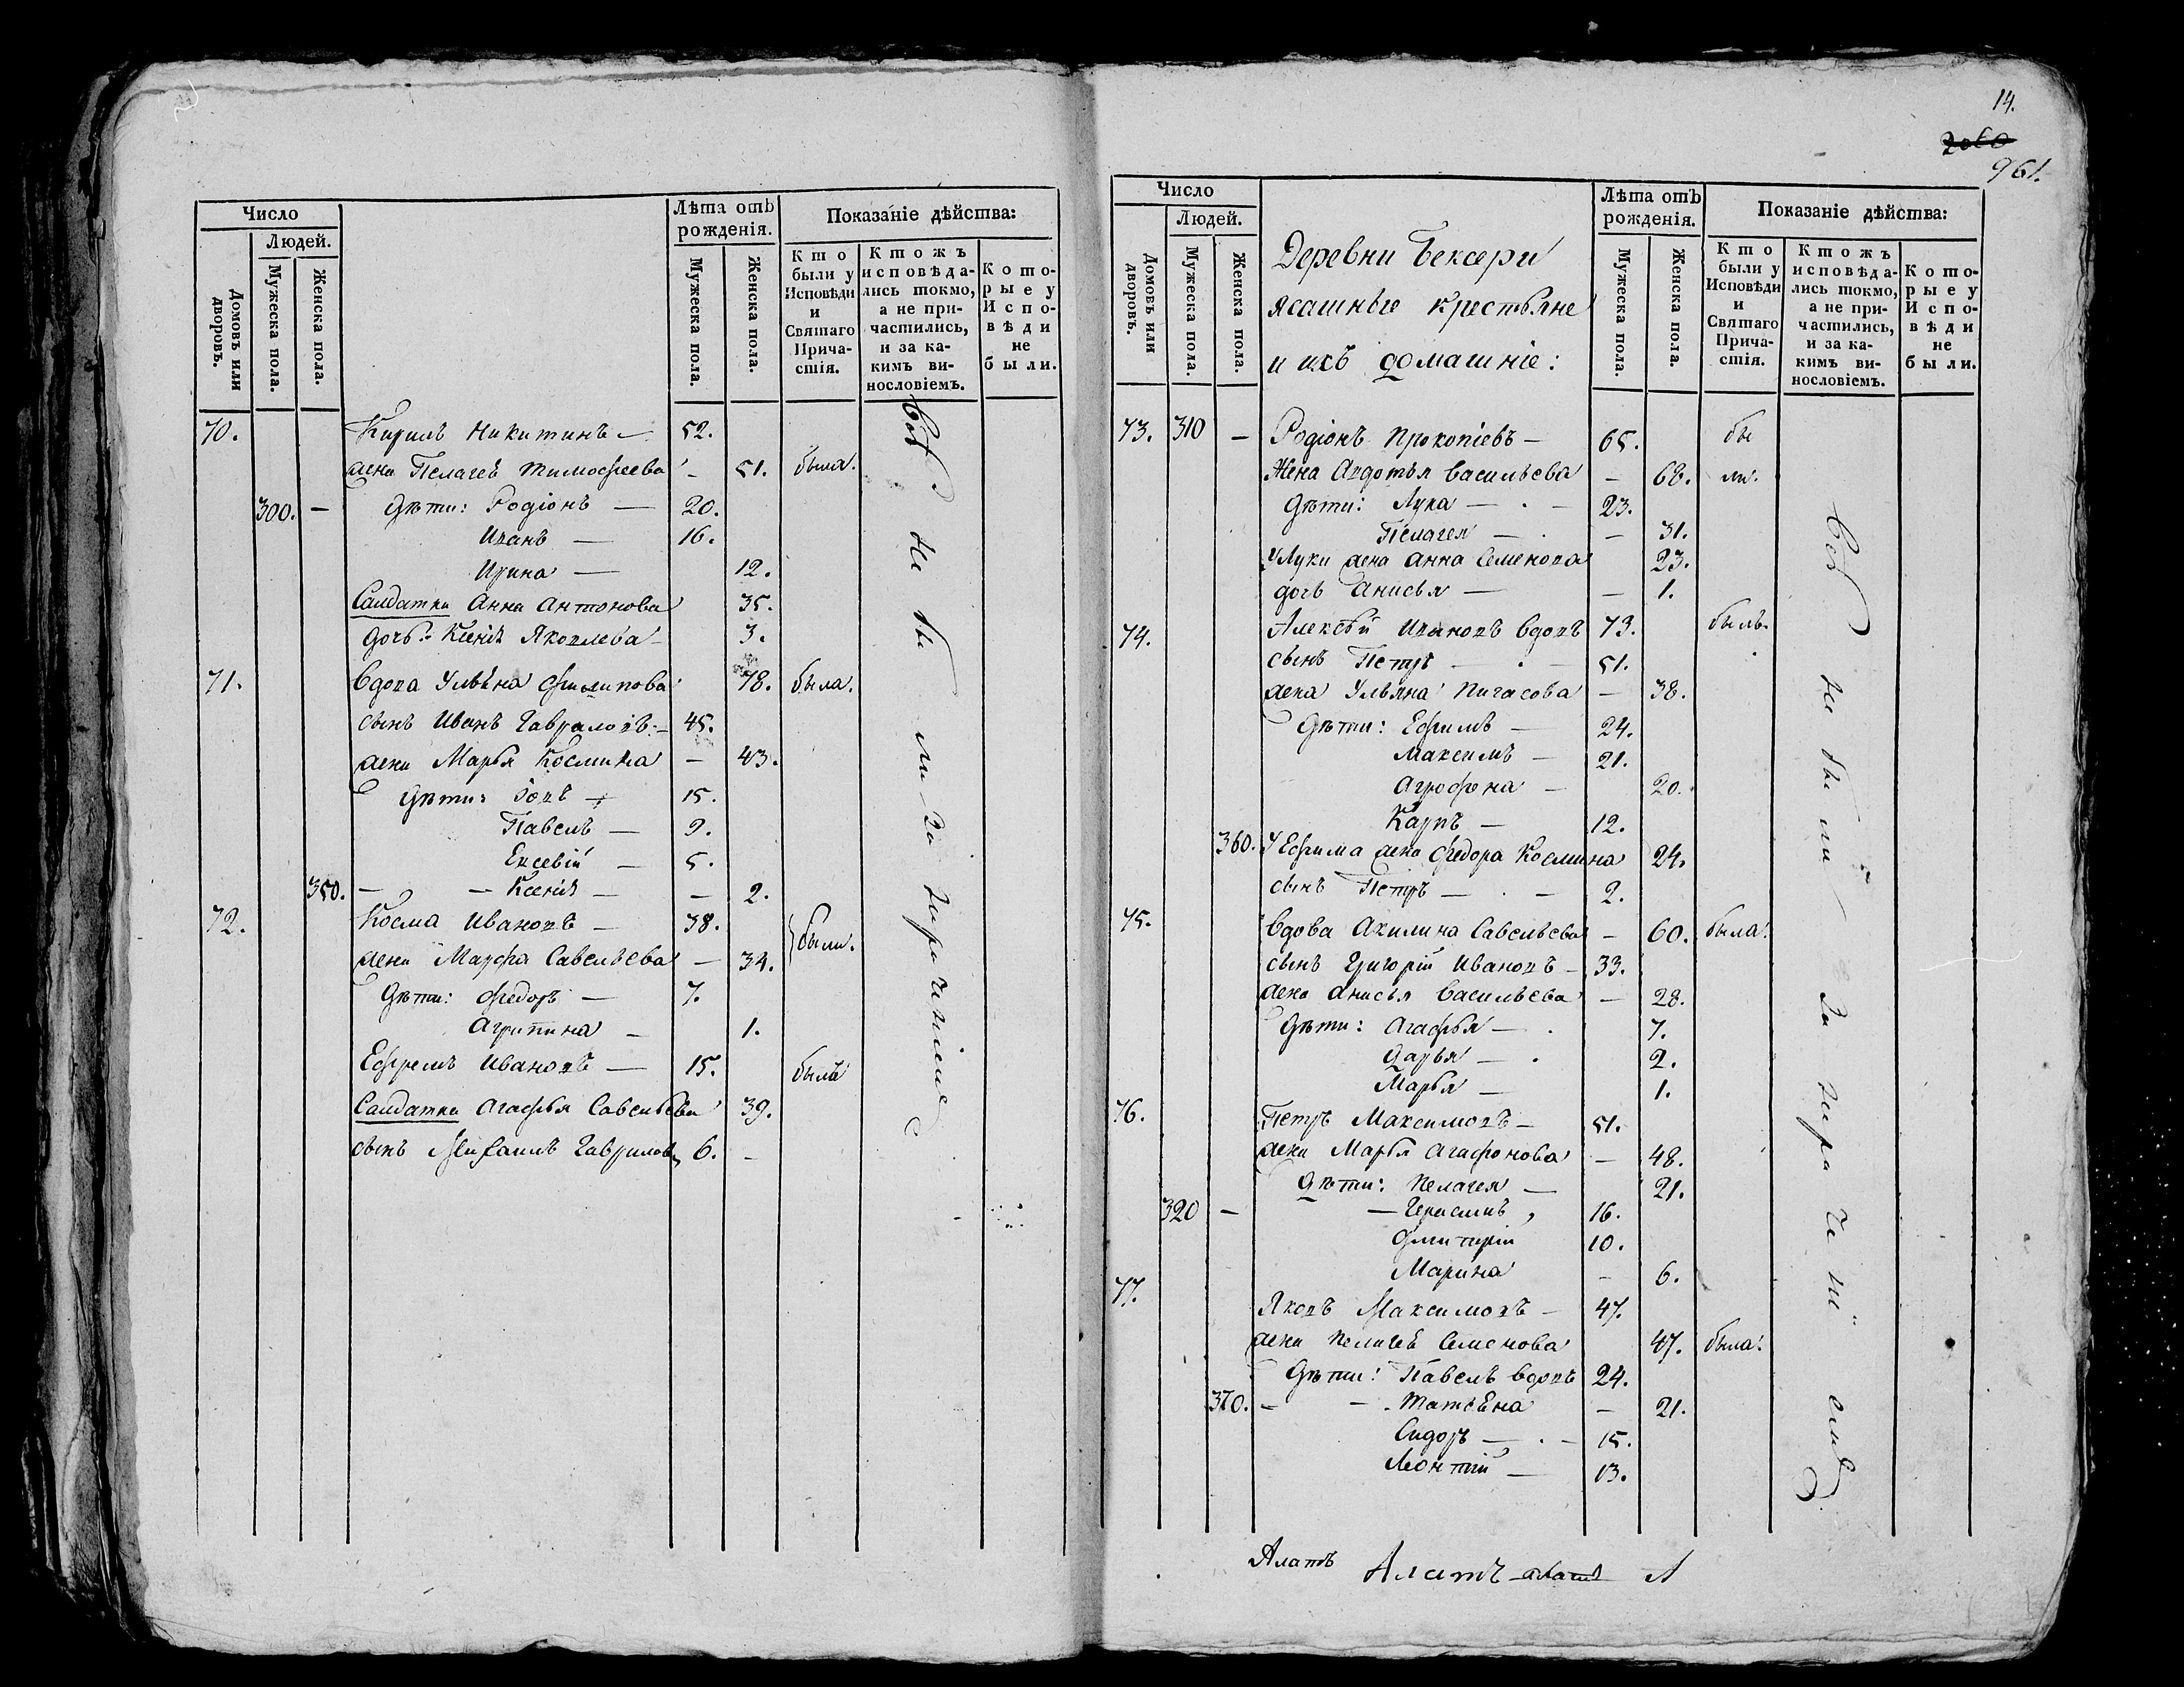 Число
Людей.
Домовъ или дворовъ.
Мужеска пола.
Женска пола.
Лѣта отъ рожденія.
Мужеска пола.
Женска пола.
Показаніе дѣйства:
Кто были у Исповѣди и Святаго Причастія.
Ктожъ исповѣдались токмо, а не причастились, и за какимъ винословіемъ.
Которые у Исповѣди не были.
70. Кирилъ Никитинъ — 52.
жена Пелагея Тимофеева — 51. была.
300. — Дѣти: Родіонъ — 20.
Иванъ — 16.
Ирина — 12.
Салдатка Анна Антонова 35.
дочь Ксенія Яковлева 3.
71. Вдова Ульяна Филипова 78. была.
сынъ Иванъ Гавриловъ — 45.
жена Марья Космина — 43.
Дѣти: Іовъ — 15.
Павелъ — 9.
Евсевій — 5.
350. — — Ксенія — — 2.
72. Косма Ивановъ — 38.
были.
жена Марфа Савельева — 34.
Дѣти: Федоръ — 7.
Агрипина — 1.
Ефремъ Ивановъ — 15. былъ
Салдатка Агафья Савельева 39.
сынъ Михаилъ Гавриловъ 6. —
Всѣ не были за нирачиніемъ
14.
961.
Число
Людей.
Домовъ или дворовъ.
Мужеска пола.
Женска пола.
Деревни Бексери
ясашные крестьяне
и ихъ домашніе:
Лѣта отъ рожденія.
Мужеска пола.
Женска пола.
Показаніе дѣйства:
Кто были у Исповѣди и Святаго Причастія.
Ктожъ исповѣдались токмо, а не причастились, и за какимъ винословіемъ.
Которые у Исповѣди не были.
73. 310 — Родіонъ Прокопіевъ — 65. бы
Жена Авдотья Васильева — 68. ли.
Дѣти: Лука — 23.
Пелагея — — 31.
У Луки жена Анна Семенова 23.
дочь Анисья — — 1.
74. Алексѣй Ивановъ вдовъ 73. былъ.
сынъ Петръ — 51.
жена Ульяна Пигасова — 38.
Дѣти: Ефимъ — 24.
Максимъ — 21.
Агрофена — 20.
Карпъ — 12.
360. У Ефима жена Федора Космина 24.
сынъ Петръ — 2.
75. Вдова Акилина Савельева — 60. была.
сынъ Григорій Ивановъ — 33.
жена Анисья Васильева — 28.
Дѣти: Агафья — 7.
Дарья — 2.
Марья — 1.
76. Петръ Максимовъ — 51.
жена Марья Агафонова — 48.
Дѣти: Пелагея — 21.
320 — — Герасимъ, 16.
Дмитрій 10.
Марина — 6.
77. Яковъ Максимовъ — 47.
жена Пелагея Семенова 47. была.
Дѣти: Павелъ вдовъ 24.
370. — — Татьяна — 21.
Сидоръ — 15.
Леонтій — 13.
Всѣ не были за нирачиніемъ
Алатъ Алатъ алатъ А